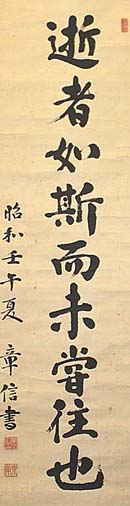 逝者如斯而未嘗往也
昭和壬午夏 章信書